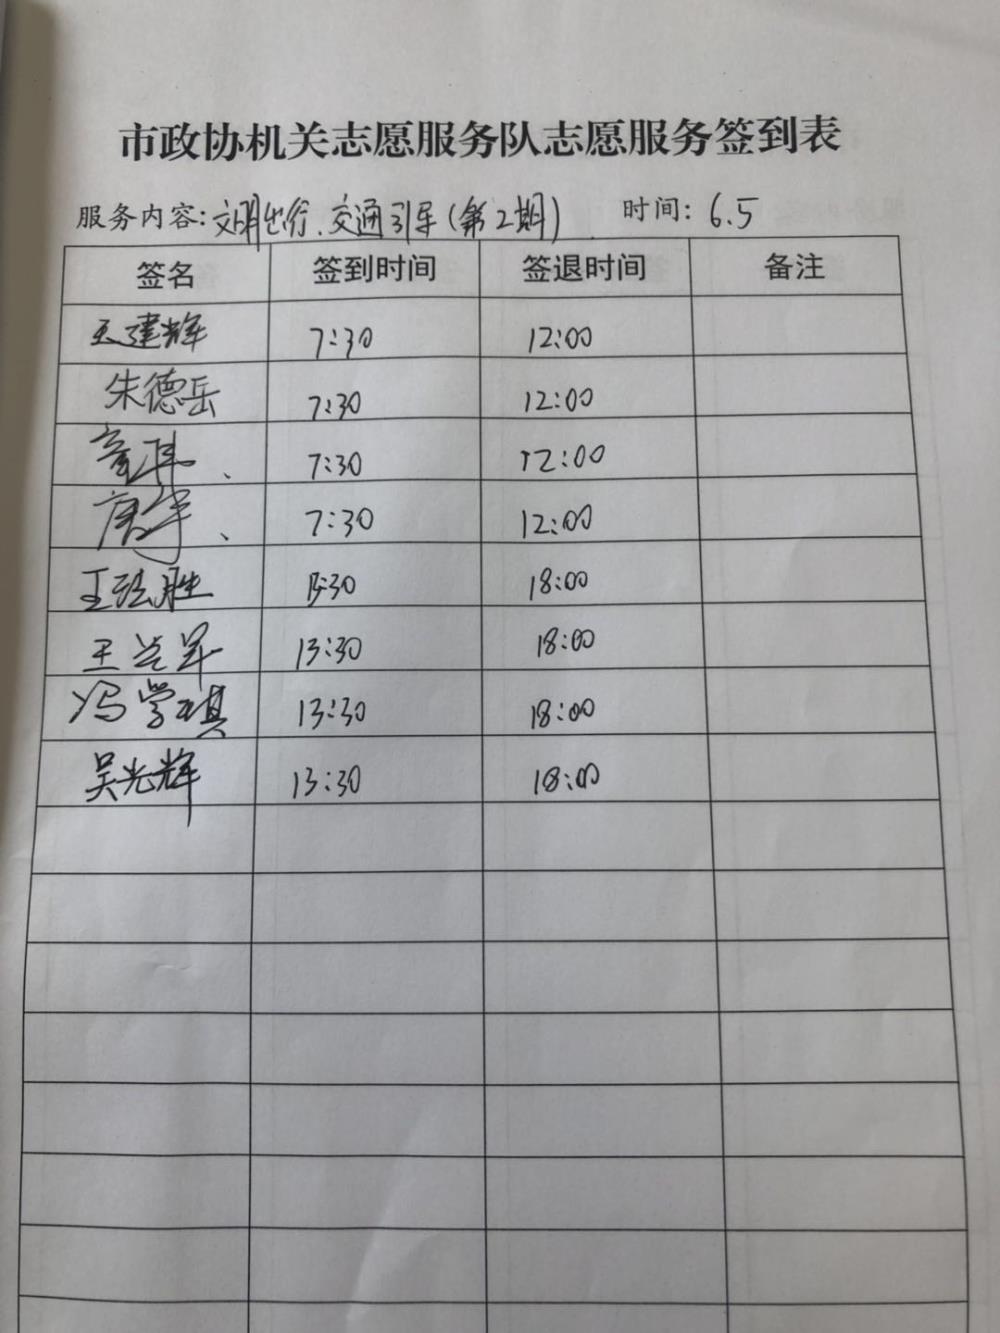 市政协机关志愿服务队志愿服务签到表
服务内容：文明出行、交通引导（第2期） 时间：6.5
签名 签到时间 签退时间 备注
王建辉 7:30 12:00
朱德岳 7:30 12:00
7:30 12:00
唐华 7:30 12:00
王 胜 13:30 18:00
王兰军 13:30 18:00
冯学琪 13:30 18:00
吴光辉 13:30 18:00